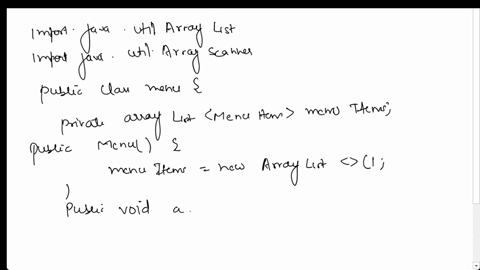 import. java. util Array List
import java. util. Array Scanner
public class menu {
private array List <Menu Item> menu Items;
public Menu() {
menu Items = new Array List <> (1;
}
public void a.